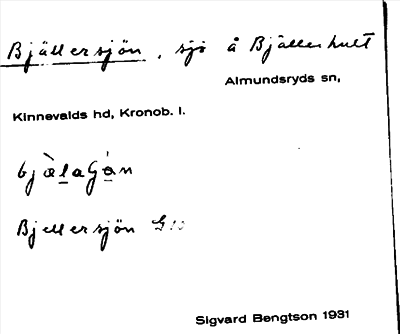 Bjällersjön, sjö å Bjällerhult
Almundsryds sn,
Kinnevalds hd, Kronob. l.
bjæ̀laGán
Bjellersjön
Sigvard Bengtson 1931